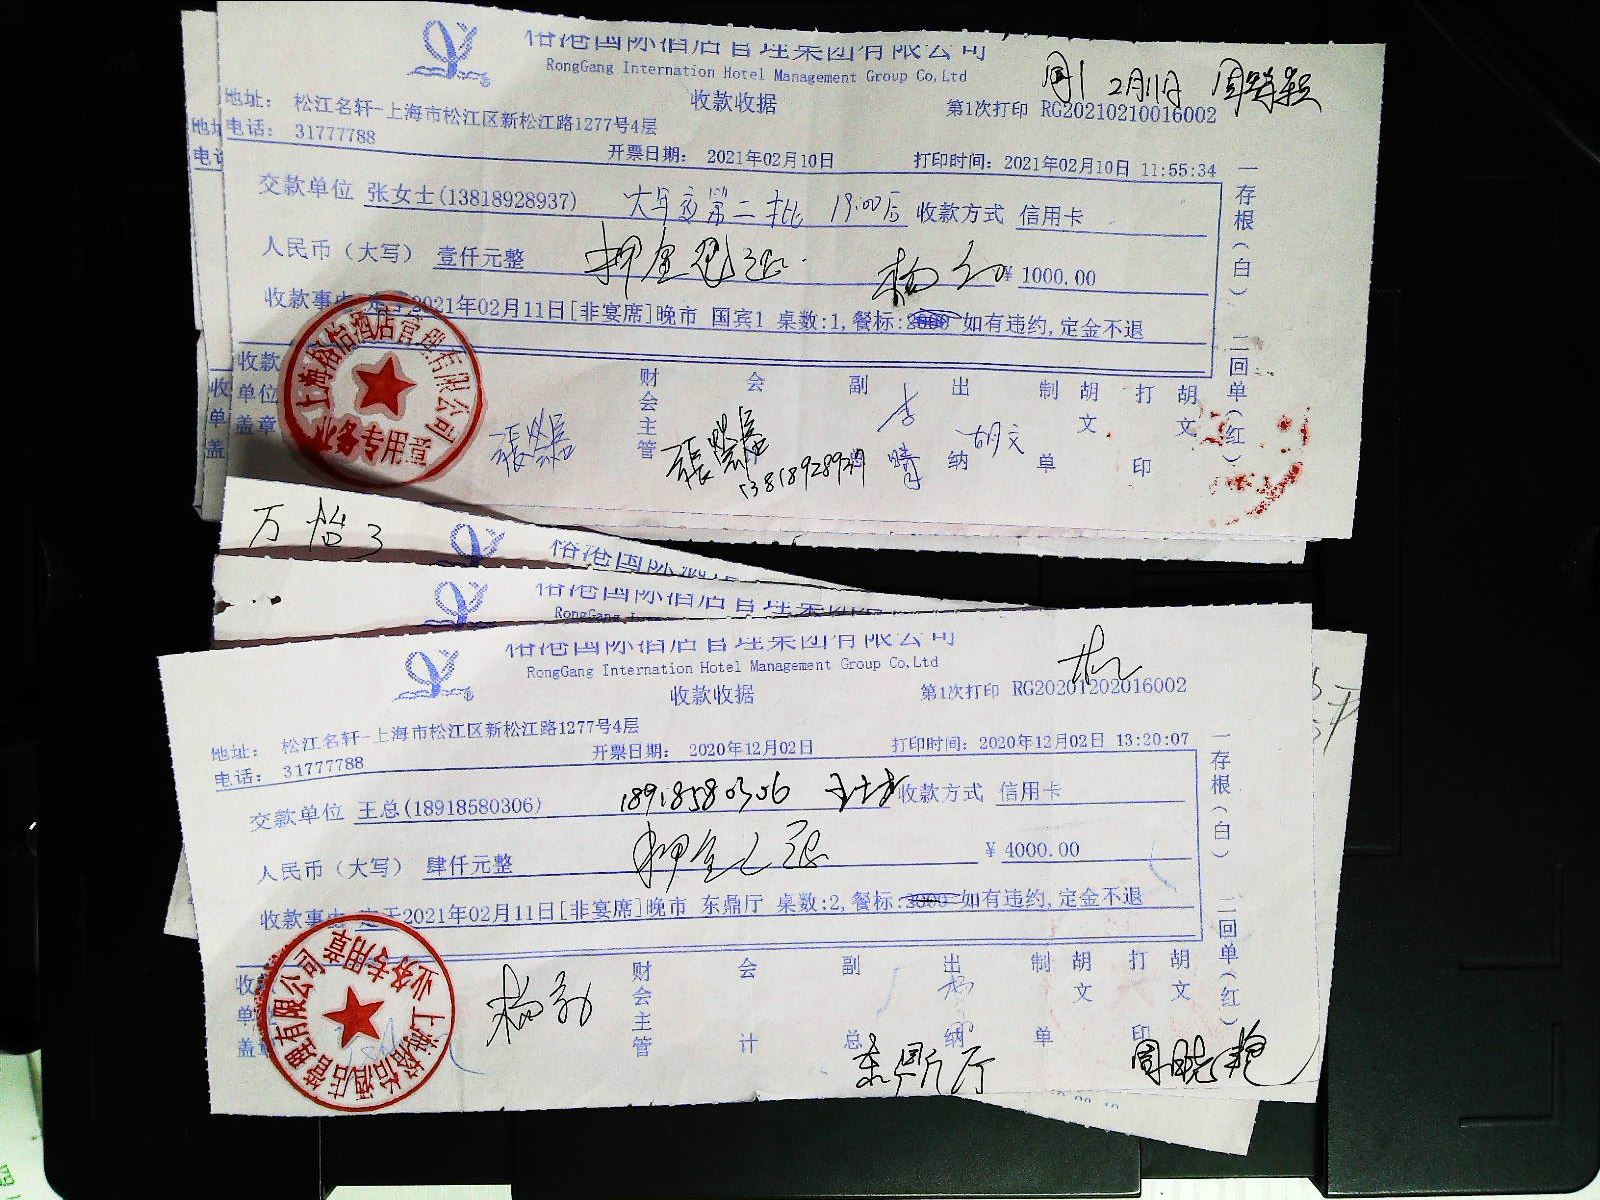 裕港国际酒店管理集团有限公司
RongGang International Hotel Management Group Co,Ltd
收款收据
2月11日
第1次打印 RG20210210016002
地址： 松江名轩-上海市松江区新松江路1277号4层
电话： 31777788
开票日期： 2021年02月10日 打印时间：2021年02月10日 11:55:34
交款单位 张女士(13818928937) 大年夜第二批 19:00后 收款方式 信用卡
人民币（大写） 壹仟元整 押金已退 ¥ 1000.00
收款事由 定于2021年02月11日[非宴席]晚市 国宾1 桌数:1,餐标: 如有违约,定金不退
收款单位盖章 财会主管 会 副 出纳 制单 胡文 打印 胡文
胡文
13818928937
上海裕怡酒店管理有限公司
业务专用章
一存根(白) 二回单(红)
地址
电话
收单盖
万怡3
裕港国际酒
裕港国际酒店管理集
RongGang
裕港国际酒店管理集团有限公司
RongGang International Hotel Management Group Co,Ltd
收款收据
第1次打印 RG20201202016002
地址： 松江名轩-上海市松江区新松江路1277号4层
电话： 31777788
开票日期： 2020年12月02日 打印时间：2020年12月02日 13:20:07
交款单位 王总(18918580306) 18918580306 收款方式 信用卡
人民币（大写） 肆仟元整 押金已退 ¥ 4000.00
收款事由 定于2021年02月11日[非宴席]晚市 东鼎厅 桌数:2,餐标: 如有违约,定金不退
收款单位盖章 财会主管 会计 副总 出纳 制单 胡文 打印 胡文
东鼎厅 周晓艳
上海裕怡酒店管理有限公司
业务专用章
一存根(白) 二回单(红)